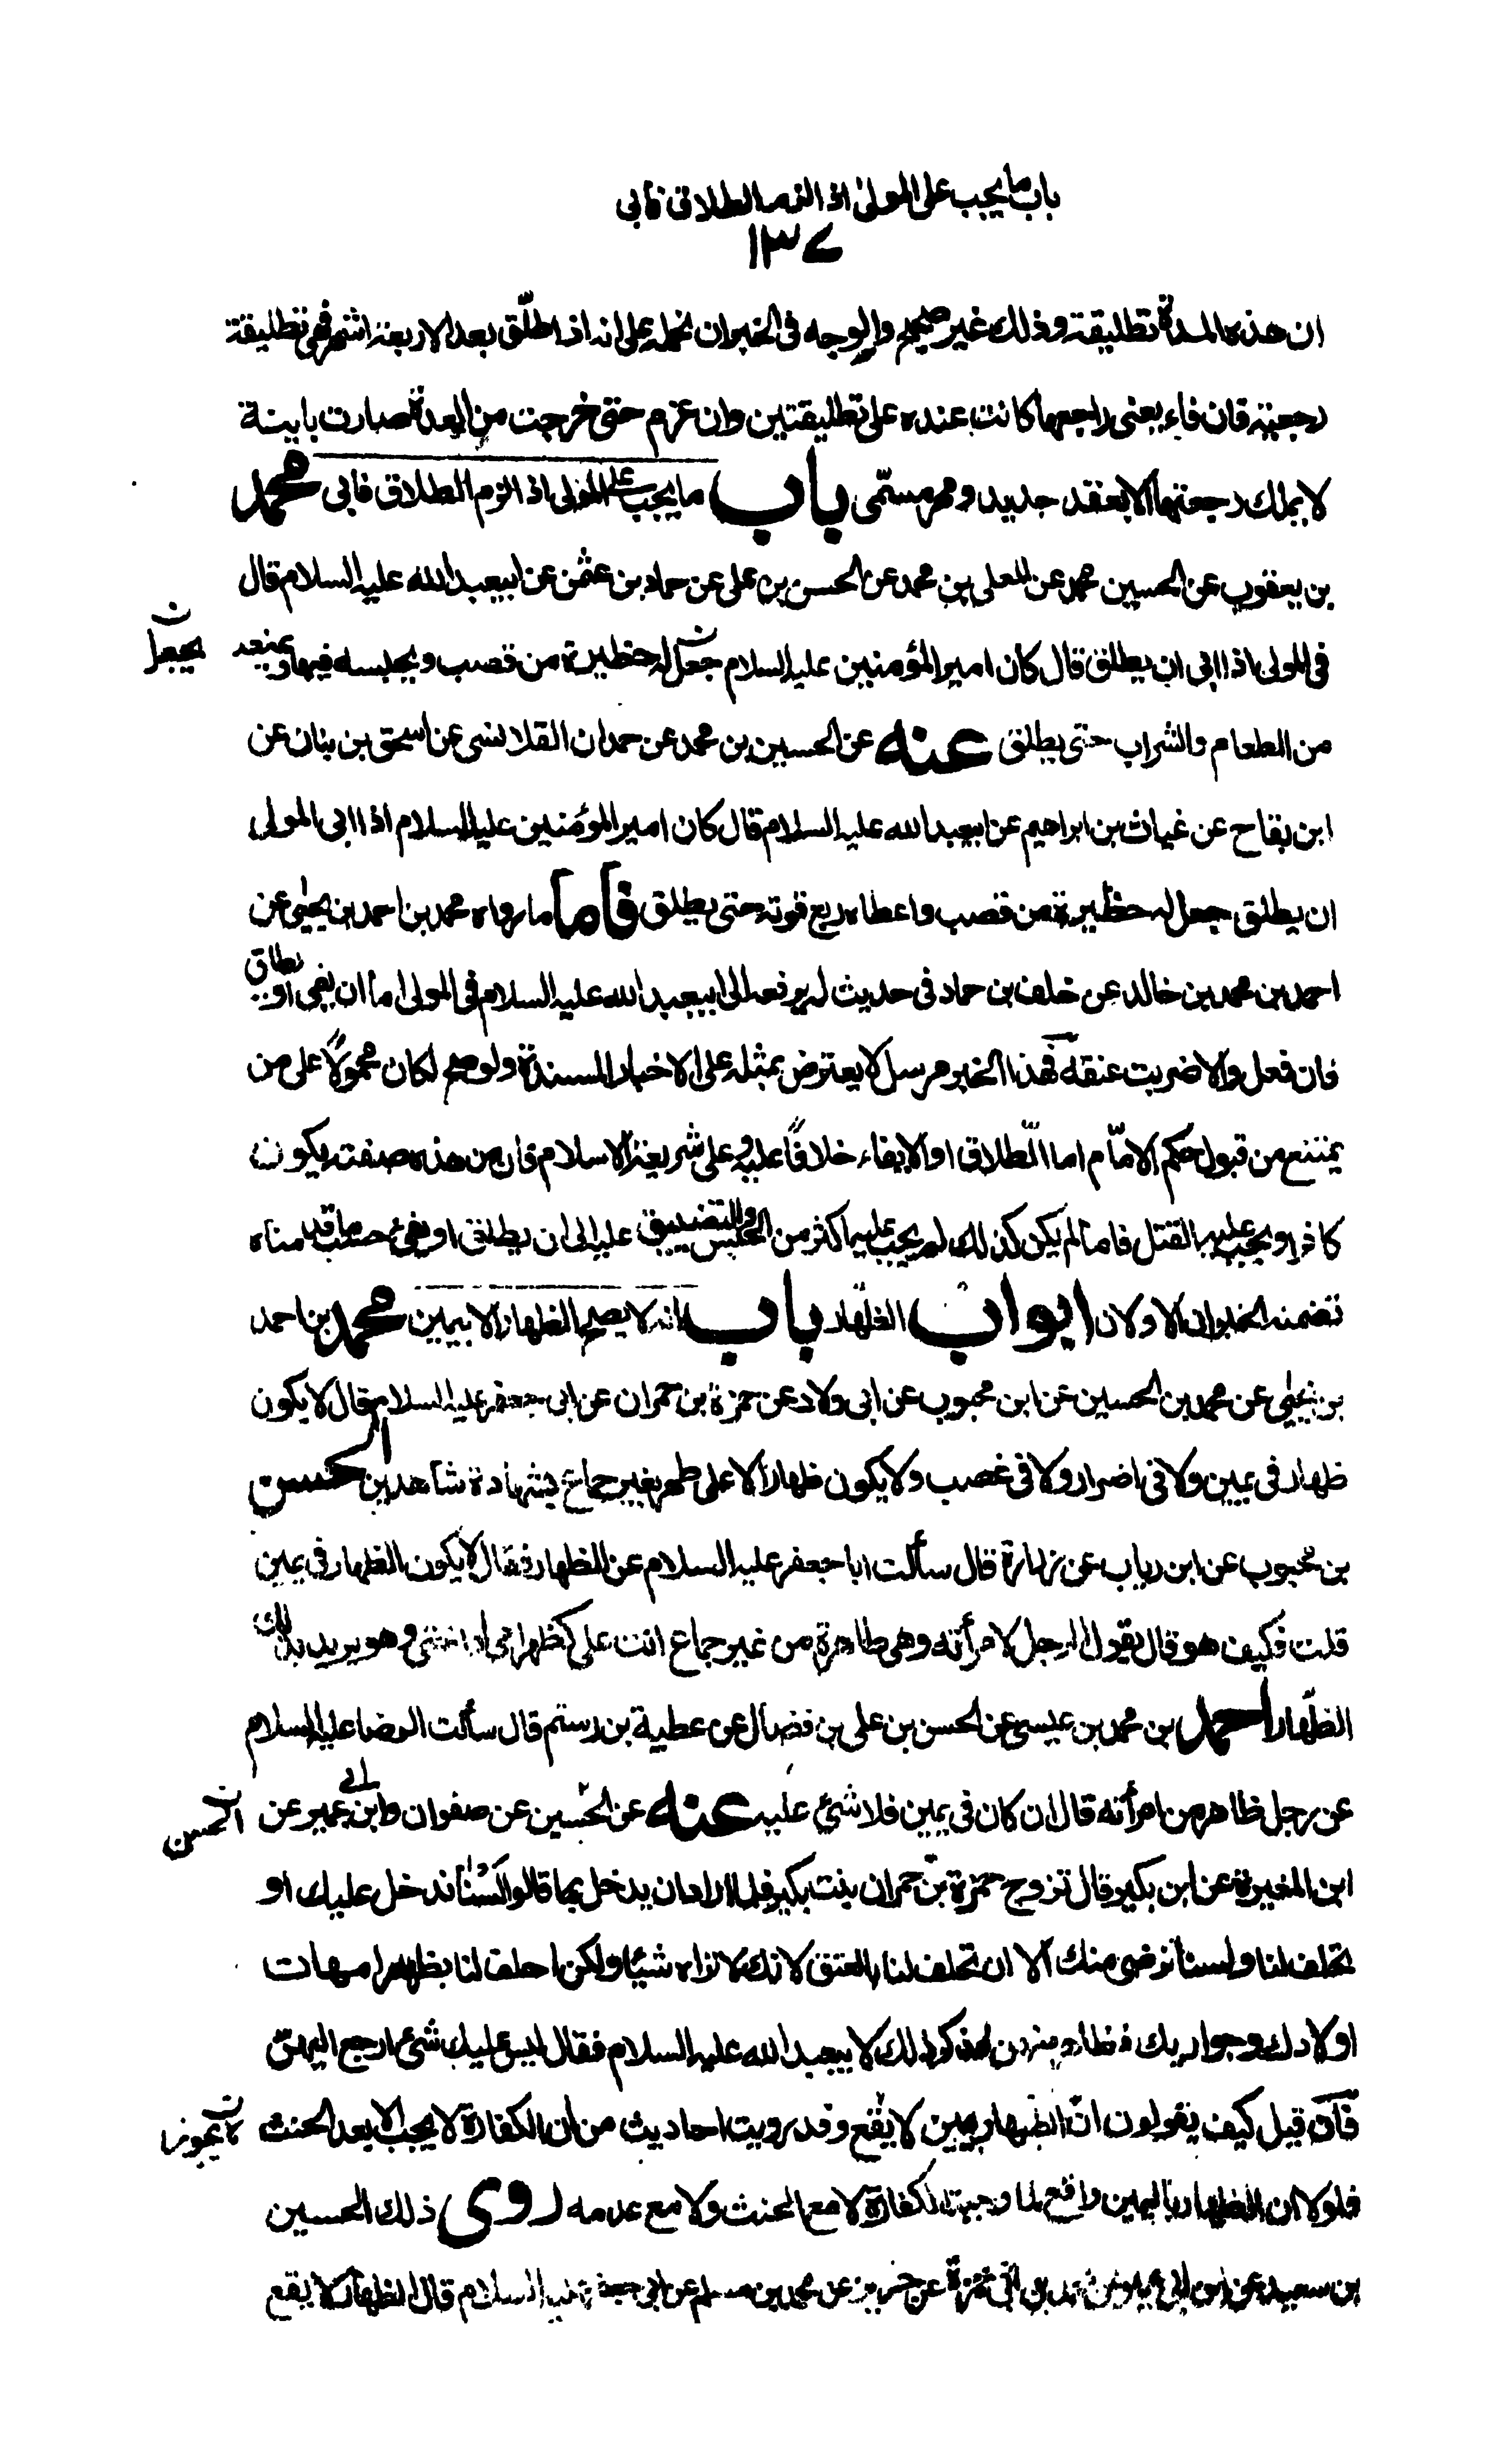 باب ما يجب على المولى اذا الزم الطلاق فابى
١٣٧
ان هذه المدة تطليقة وذلك غير صحيح والوجه فى الخبر ان نحمله على انه اذا طلّق بعد الاربعة اشهر فهى تطليقة
رجعية فان فاء يعنى راجعها كانت عنده على تطليقتين وان عزم حتى خرجت من العدة صارت باينة
لا يملك رجعتها الا بعقد جديد ومهر مسمّى باب ما يجب على المولى اذا الزم الطلاق فابى محمد
بن يعقوب عن الحسين محمد عن المعلى بن محمد عن الحسن بن على عن حماد بن عثمن عن ابيعبد الله عليه السلام قال
فى المولى اذا ابى ان يطلق قال كان امير المؤمنين عليه السلام جعل له حظيرة من قصب ويجلسه فيها ويمنعه
يجعل ن
من الطعام والشراب حتى يطلق عنه عن الحسين بن محمد عن حمدان القلانسى عن اسحق بن بنان عن
ابن بقاح عن غياث بن ابراهيم عن ابيعبد الله عليه السلام قال كان امير المؤمنين عليه السلام اذا ابى المولى
ان يطلق جعل له حظيرة من قصب واعطاه ربع قوته حتى يطلق فاما ما رواه محمد بن احمد بن يحيى عن
احمد بن محمد بن خالد عن خلف بن حماد فى حديث له يرفعه الى ابيعبد الله عليه السلام فى المولى اما ان يفى او يطلق
فان فعل والا ضربت عنقه فهذا الخبر مرسل لا يعترض بمثله على الاخبار المسندة ولو صح لكان محمولاً على من
يمتنع من قبول حكم الامام اما الطلاق او الايفاء خلافاً عليه وعلى شريعة الاسلام فان من هذه صفته يكون
كافرا ويجب عليه القتل فاما لم يكن كذلك لم يجب عليه اكثر من الحبس والتضييق عليه الى ان يطلق او يفئ حسب ما قدمناه
تضمنه الخبران الاولان ابواب الظهار باب انه لا يصح الظهار الا بيمين محمد بن احمد
بن يحيى عن محمد بن الحسين عن ابن محبوب عن ابى ولاد عن حمزة بن حمران عن ابى جعفر عليه السلام قال لا يكون
ظهار فى يمين ولا فى اضرار ولا فى غضب ولا يكون ظهار الا على طهر بغير جماع بشهادة شاهدين الحسن
بن محبوب عن ابن رياب عن زرارة قال سألت ابا جعفر عليه السلام عن الظهار فقال لا يكون الظهار فى يمين
قلت فكيف هو قال يقول الرجل لامرأته وهى طاهرة من غير جماع انت على كظهر امى او اختى وهو يريد بذلك
الظهار احمد بن محمد بن عيسى عن الحسن بن على بن فضال عن عطية بن رستم قال سألت الرضا عليه السلام
عن رجل ظاهر من امرأته قال ان كان فى يمين فلا شئ عليه عنه عن الحسين عن صفوان وابن ابى عمير عن
الحسن ن
ابن المغيرة عن ابن بكير قال تزوج حمزة بن حمران بنت بكير فلما اراد ان يدخل بها قالوا لسنا ندخل عليك او
تحلف لنا ولسنا نرضى منك الا ان تحلف لنا بالعتق لانك لا تراه شيئا ولكن احلف لنا بظهار امهات
اولادك وجواريك فظاهر منهن ثم ذكر ذلك لابيعبد الله عليه السلام فقال ليس عليك شئ ارجع اليهن
فان قيل كيف يقولون ان الظهار بيمين لا يقع وقد رويت احاديث من ان الكفارة لا يجب الا بعد الحنث
فلولا ان الظهار باليمين واقع لما وجبت الكفارة لا مع الحنث ولا مع عدمه روى ذلك الحسين
بن سعيد عن ابن ابى عمير عن محمد بن ابى حمزة عن حريز عن محمد بن مسلم عن ابى جعفر عليه السلام قال الظهار لا يقع